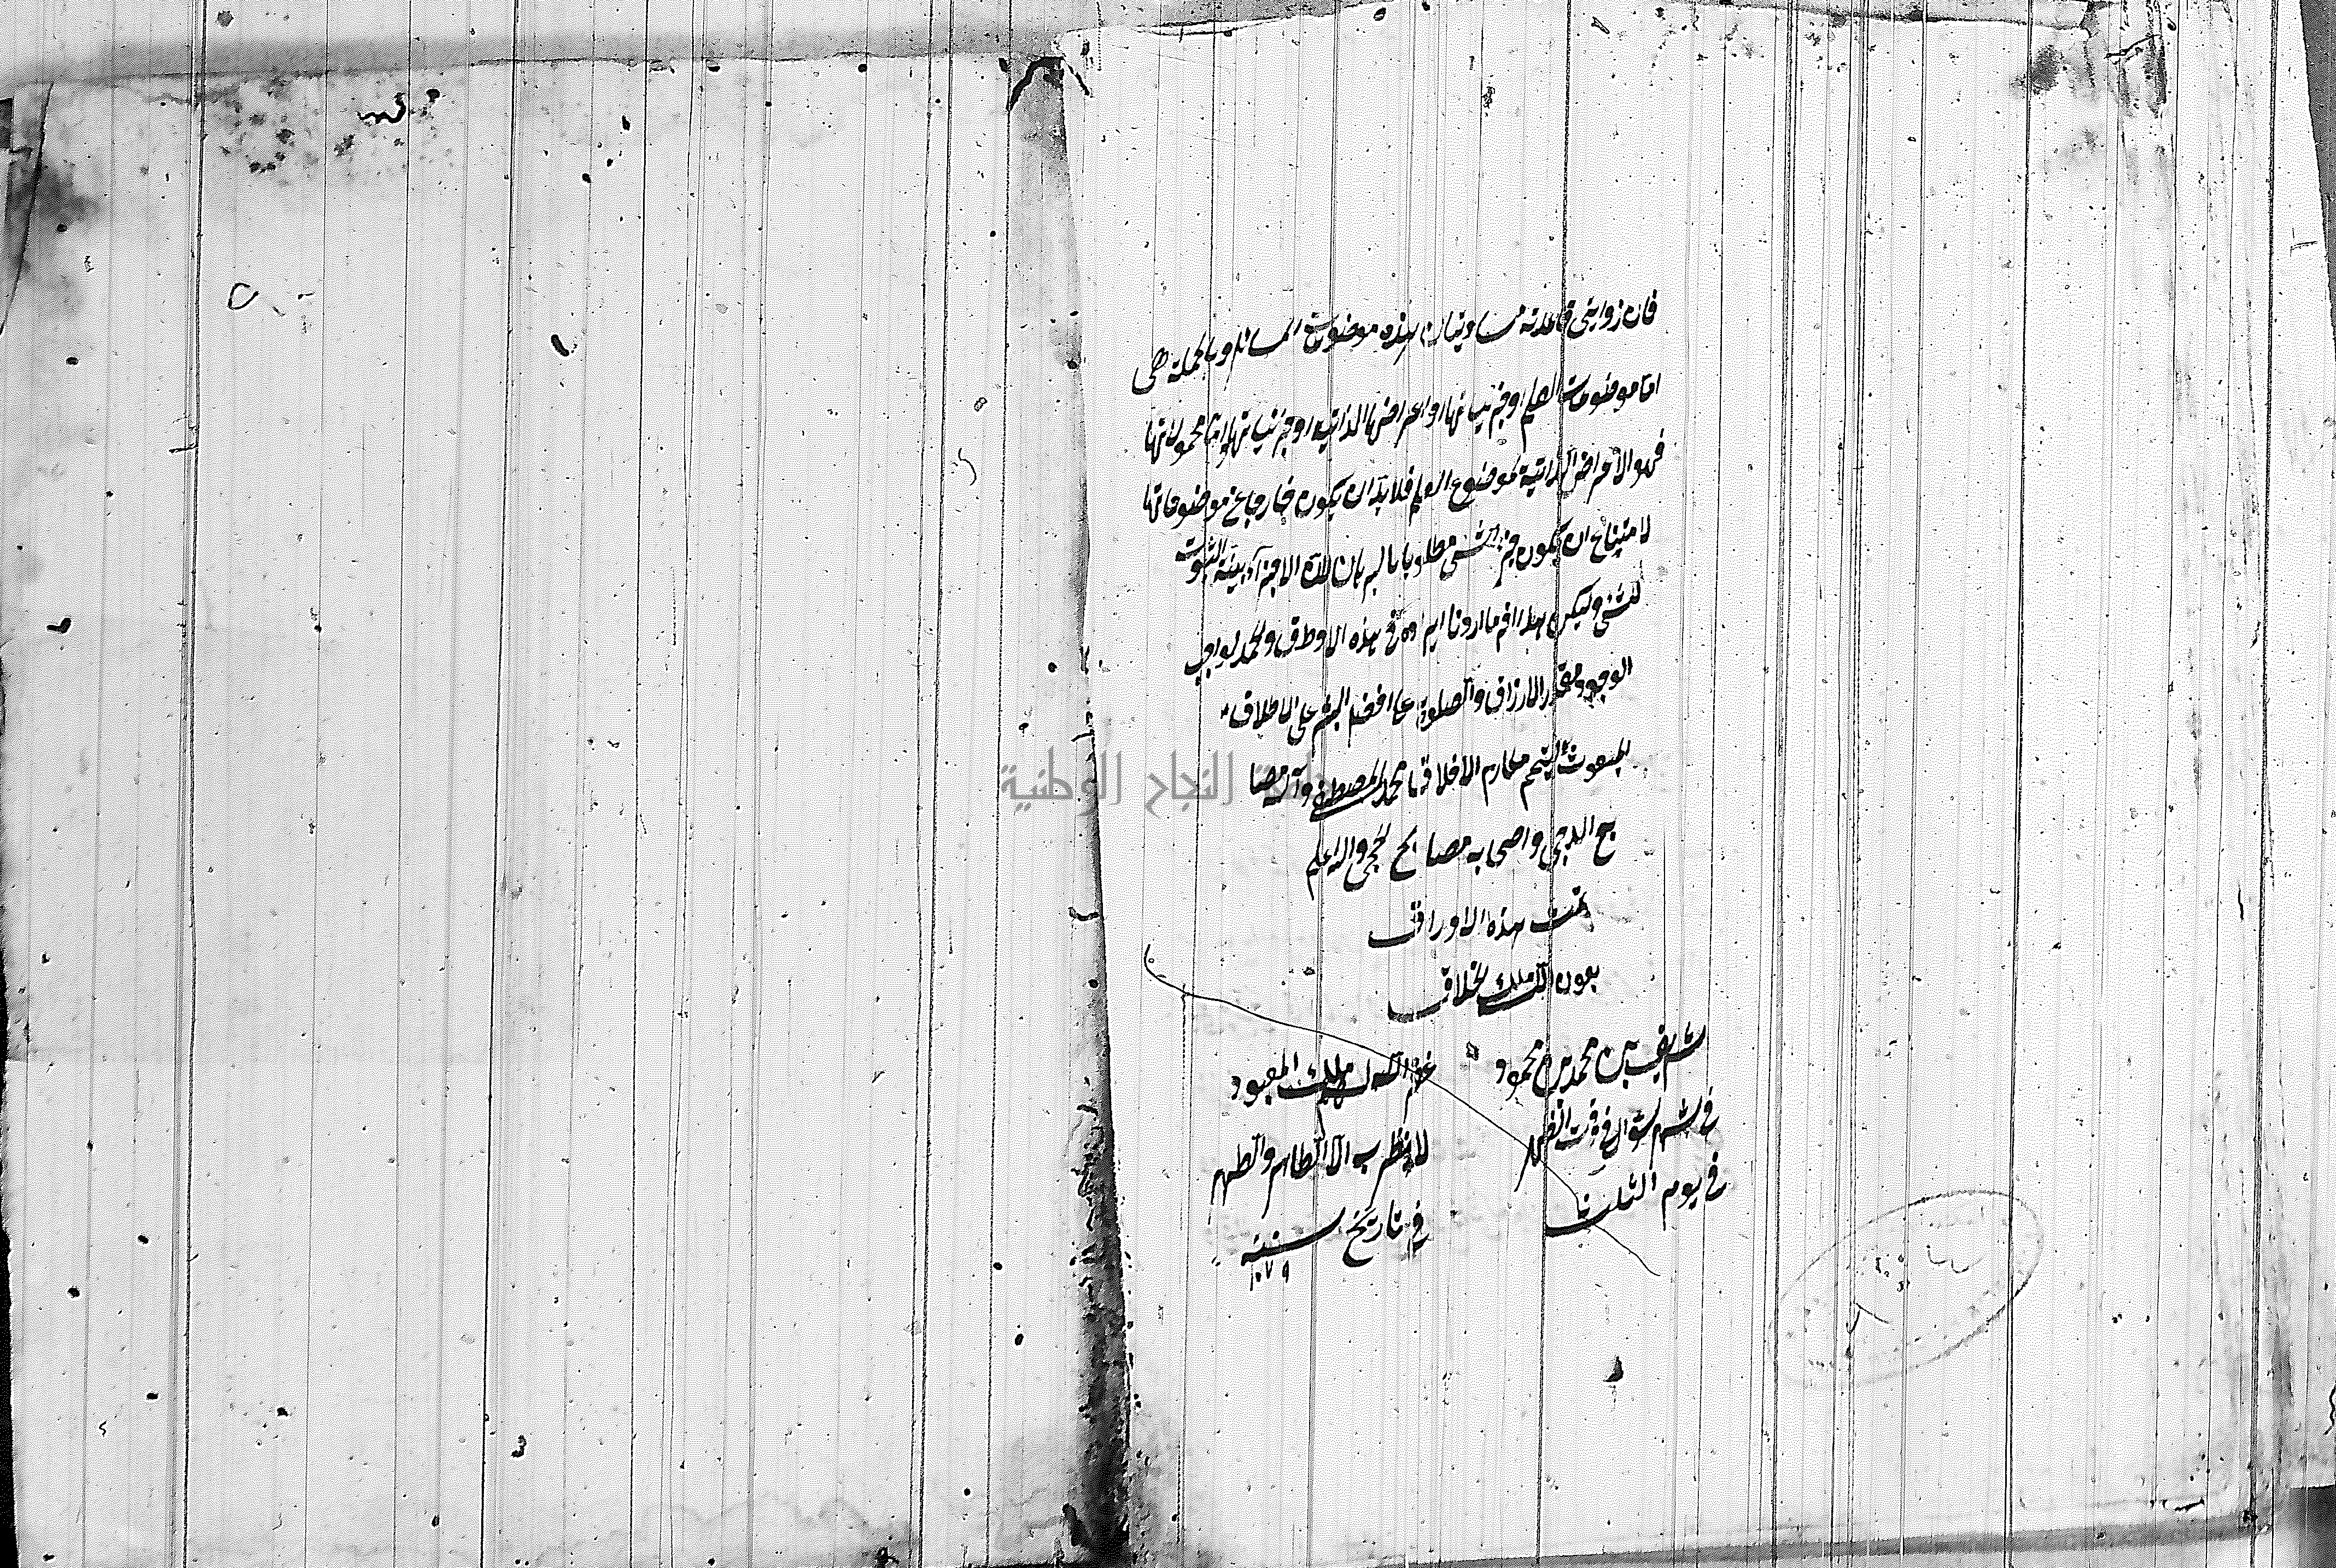 فان زوايتى قاعدته متساويتان فهذه موضوعات المسائل وبالجملة هى
اما موضوعات العلم او جزئياتها او اعراضها الذاتية او جزئياتها واما محمولاتها
فهو الاعراض الذاتية لموضوع العلم فلا بد ان يكون خارجا عن موضوعاتها
لامتناع ان يكون جزء الشئ مطلوبا بالبرهان لان الاجزآء بينة الثبوت
للشئ وليكن هذا اخر ما اردنا ايراده فى هذه الاوراق والحمد لواجب
الوجود ومقدر الارزاق والصلوة على افضل البشر على الاطلاق
المبعوث لتتميم مكارم الاخلاق محمد المصطفى وآله مصا
بيح الدجى واصحابه مصابيح الحجى والله اعلم
تمت هذه الاوراق
بعون الملك الخلاق
شريف بن محمد بن محمود غفر الله له الملك المعبود
فى شهر شوال فى وقت الظهر لا يظرب الا الطاهر والطهر
فى يوم الثلثا فى تاريخ سنة
١٠٧٩
جامعة النجاح الوطنية